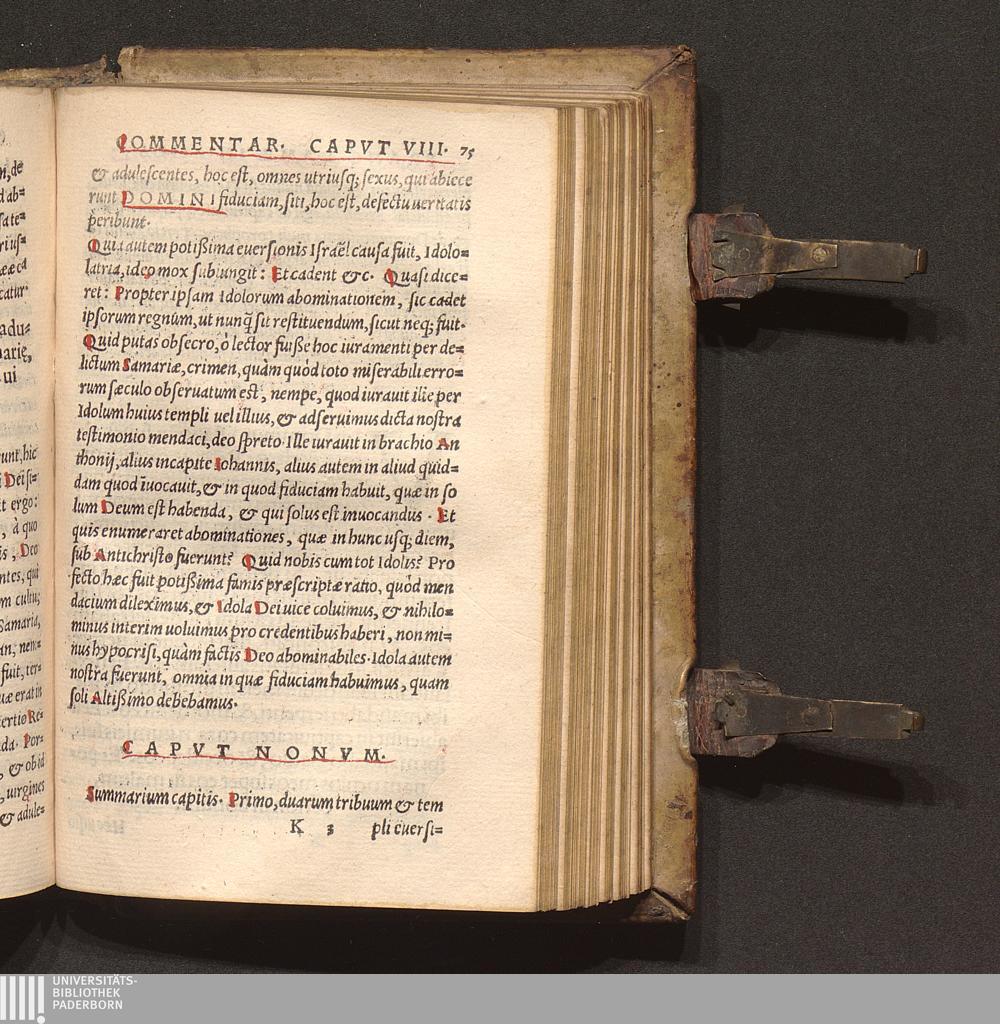 n, de
d ab=
sa te=
rius=
ææ ea
catur·
adu=
ariæ,
ui
runt, hic
i Dei si=
it ergo:
, à quo
is, Deo
ntes, qui
m cultu;
Samaria,
an, nem=
fuit, ter=
uæ erat in
ertio Re=
da· Por=
, & ob id
, uirgines
& adule=
COMMENTAR· CAPVT VIII· 75
& adulescentes, hoc est, omnes utriusq; sexus, qui abiece
runt DOMINI fiduciam, siti, hoc est, defectu ueritatis
peribunt·
Quia autem potißima euersionis Israël causa fuit, Idolo=
latria, ideo mox subiungit: Et cadent &c· Quasi dice=
ret: Propter ipsam Idolorum abominationem, sic cadet
ipsorum regnum, ut nunq̃ sit restituendum, sicut neq; fuit·
Quid putas obsecro, ò lector fuiße hoc iuramenti per de=
lictum Samariæ, crimen, quàm quòd toto miserabili erro=
rum sæculo obseruatum est, nempe, quod iurauit ille per
Idolum huius templi uel illius, & adseruimus dicta nostra
testimonio mendaci, deo spreto· Ille iurauit in brachio An
thonij, alius in capite Iohannis, alius autem in aliud quid=
dam quod īuocauit, & in quod fiduciam habuit, quæ in so
lum Deum est habenda, & qui solus est inuocandus · Et
quis enumeraret abominationes, quæ in hunc usq; diem,
sub Antichristo fuerunt? Quid nobis cum tot Idolis? Pro
fecto hæc fuit potißima famis præscriptæ ratio, quòd men
dacium dileximus, & Idola Dei uice coluimus, & nihilo=
minus interim uoluimus pro credentibus haberi, non mi=
nus hypocrisi, quàm factis Deo abominabiles· Idola autem
nostra fuerunt, omnia in quæ fiduciam habuimus, quam
soli Altißimo debebamus·
CAPVT NONVM·
Summarium capitis· Primo, duarum tribuum & tem
K 3 pli euersi=
UNIVERSITÄTS-
BIBLIOTHEK
PADERBORN